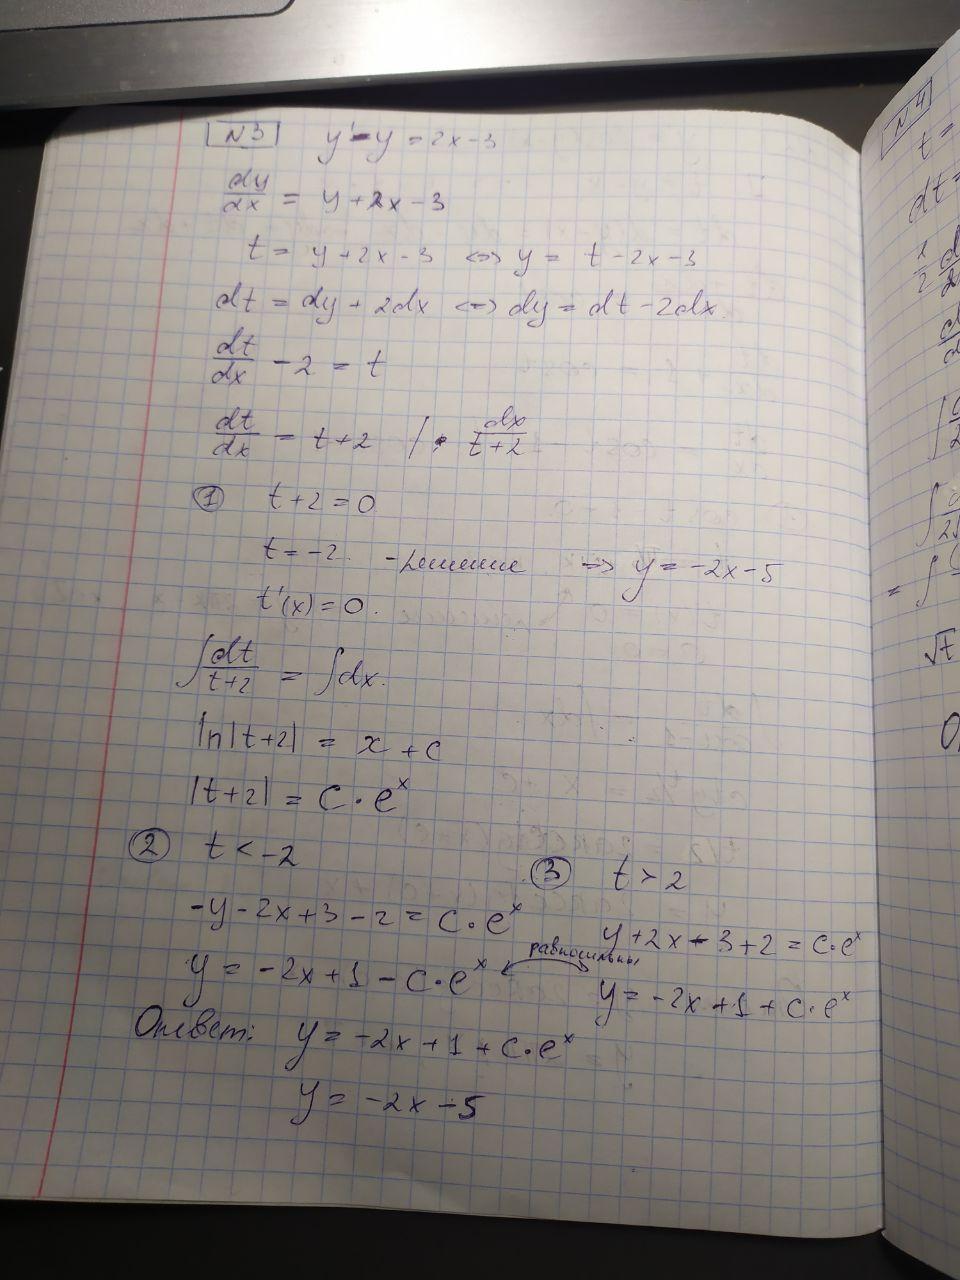 N3 y' - y = 2x - 3
dy/dx = y + 2x - 3
t = y + 2x - 3 <=> y = t - 2x - 3
dt = dy + 2dx <=> dy = dt - 2dx.
dt/dx - 2 = t
dt/dx = t + 2 | · dx/(t+2)
① t + 2 = 0
t = -2. - решение => y = -2x - 5
t'(x) = 0.
∫ dt/(t+2) = ∫ dx.
ln|t+2| = x + c
|t+2| = c · e^x
② t < -2
-y - 2x + 3 - 2 = c · e^x
y = -2x + 1 - c · e^x
равносильны
③ t > 2
y + 2x - 3 + 2 = c · e^x
y = -2x + 1 + c · e^x
Ответ: y = -2x + 1 + c · e^x
y = -2x - 5
N4
t =
dt =
√t